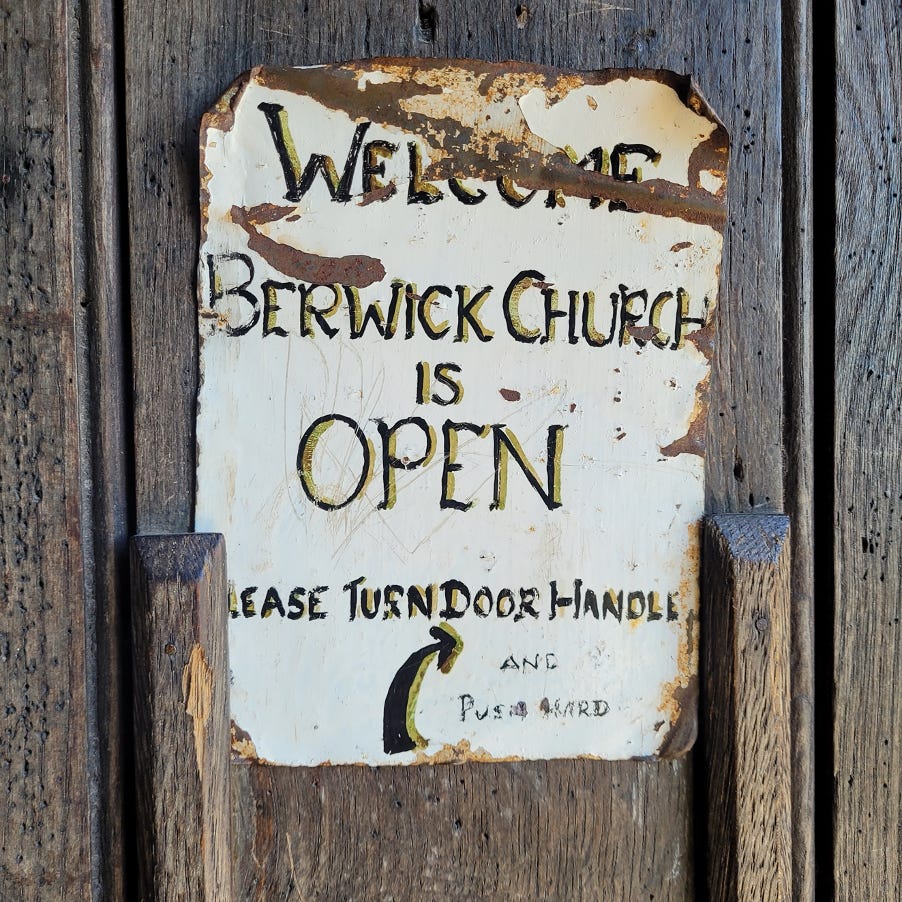 WELCOME
BERWICK CHURCH
IS
OPEN
LEASE TURN DOOR HANDLE
AND
PUSH HARD